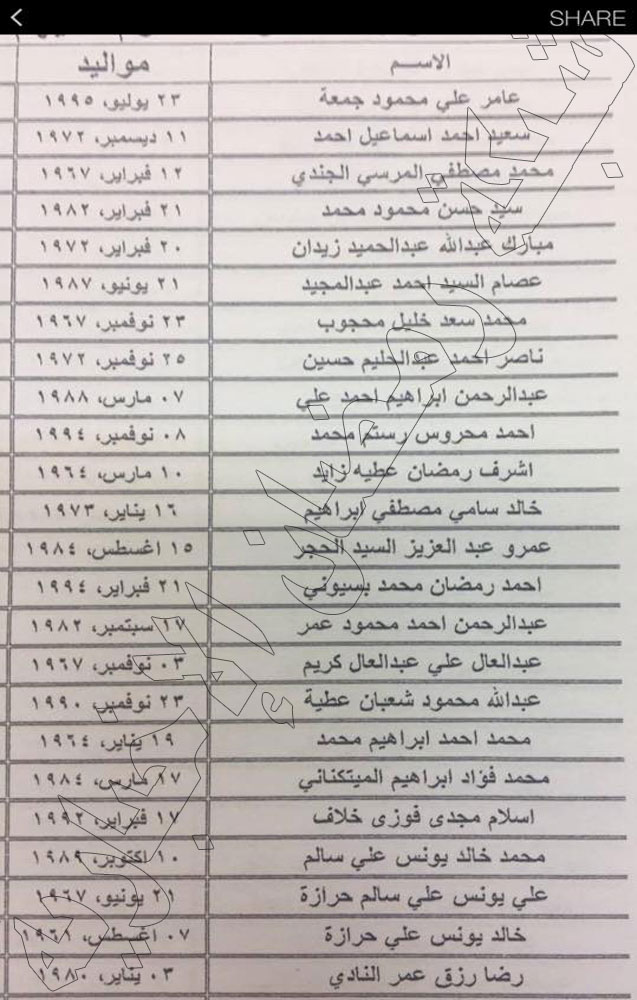 SHARE
الاســم مواليد
عامر علي محمود جمعة ٢٣ يوليو، ١٩٩٥
سعيد احمد اسماعيل احمد ١١ ديسمبر، ١٩٧٢
محمد مصطفي المرسي الجندي ١٢ فبراير، ١٩٦٧
سيد حسن محمود محمد ٢١ فبراير، ١٩٨٢
مبارك عبدالله عبدالحميد زيدان ٢٠ فبراير، ١٩٧٢
عصام السيد احمد عبدالمجيد ٢١ يونيو، ١٩٨٧
محمد سعد خليل محجوب ٢٣ نوفمبر، ١٩٦٧
ناصر احمد عبدالحليم حسين ٢٥ نوفمبر، ١٩٧٢
عبدالرحمن ابراهيم احمد علي ٠٧ مارس، ١٩٨٨
احمد محروس رستم محمد ٠٨ نوفمبر، ١٩٩٤
اشرف رمضان عطيه زايد ١٠ مارس، ١٩٦٤
خالد سامي مصطفي ابراهيم ١٦ يناير، ١٩٧٣
عمرو عبد العزيز السيد الحجر ١٥ اغسطس، ١٩٨٤
احمد رمضان محمد بسيوني ٢١ فبراير، ١٩٩٤
عبدالرحمن احمد محمود عمر ١٧ سبتمبر، ١٩٨٢
عبدالعال علي عبدالعال كريم ٠٣ نوفمبر، ١٩٦٧
عبدالله محمود شعبان عطية ٢٣ نوفمبر، ١٩٩٠
محمد احمد ابراهيم محمد ١٩ يناير، ١٩٦٤
محمد فؤاد ابراهيم الميتكناني ١٧ مارس، ١٩٨٤
اسلام مجدى فوزى خلاف ١٧ فبراير، ١٩٩٢
محمد خالد يونس علي سالم ١٠ اكتوبر، ١٩٨٩
علي يونس علي سالم حرازة ٢١ يونيو، ١٩٦٧
خالد يونس علي حرازة ٠٧ اغسطس، ١٩٦١
رضا رزق عمر النادي ٠٣ يناير، ١٩٨٠